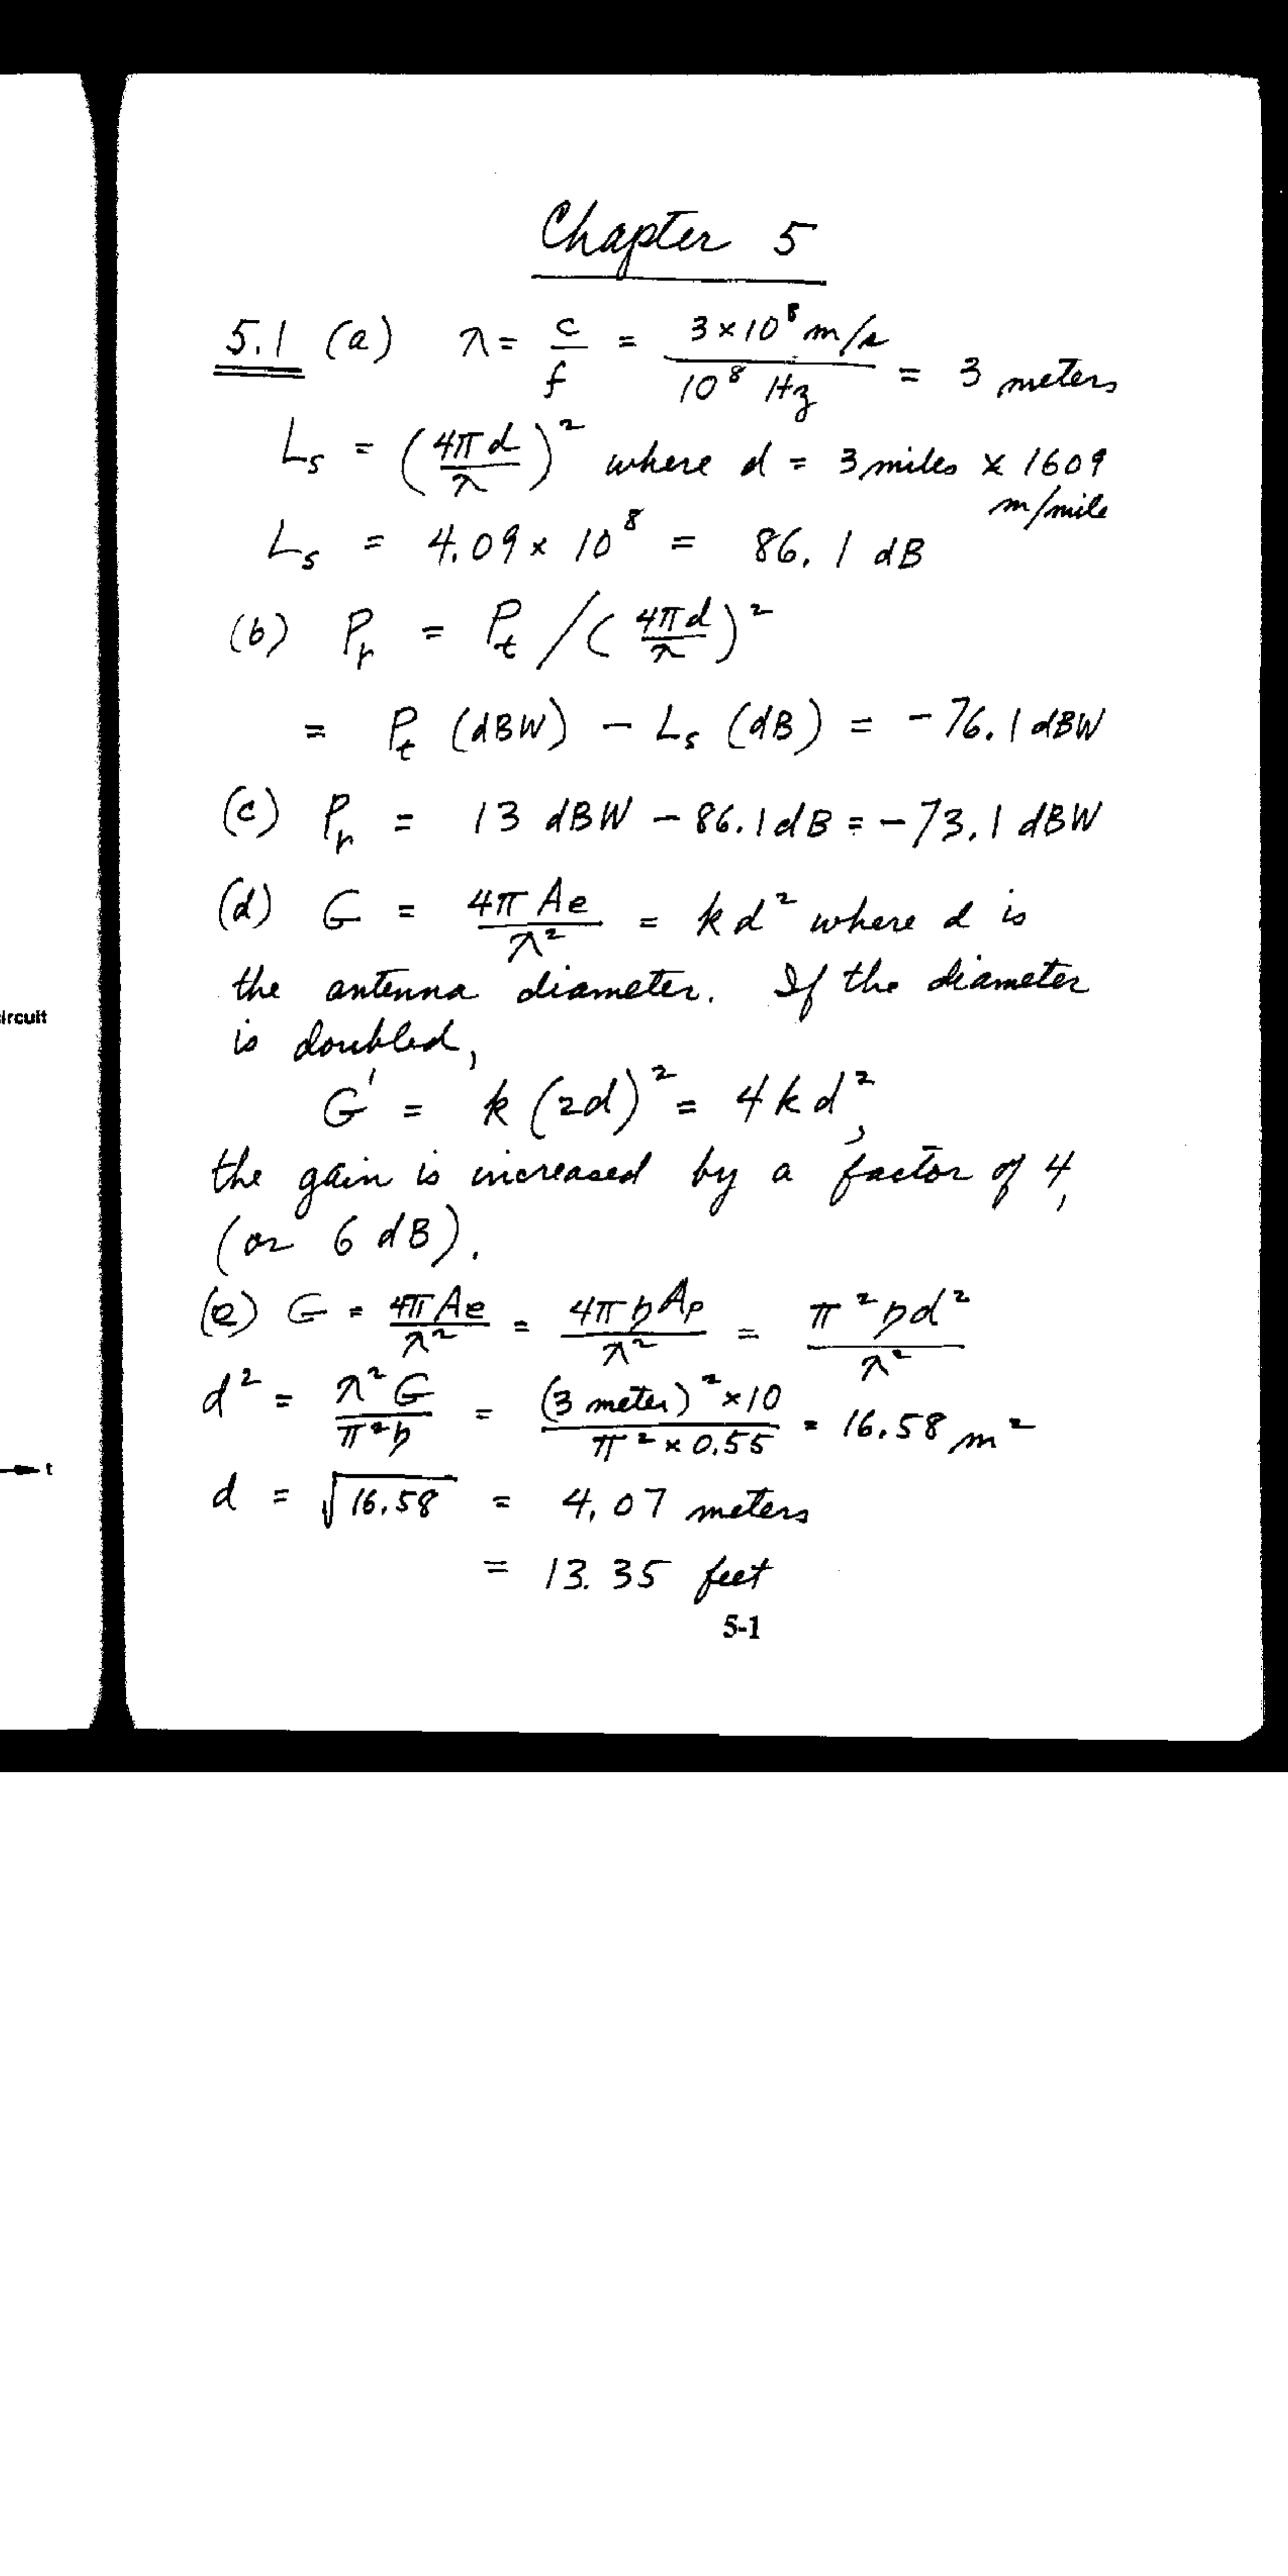 Chapter 5
5.1 (a) λ = c/f = 3×10⁸ m/s / 10⁸ Hz = 3 meters
Ls = (4πd/λ)² where d = 3 miles × 1609
m/mile
Ls = 4.09 × 10⁸ = 86.1 dB
(b) Pr = Pt / (4πd/λ)²
= Pt (dBW) − Ls (dB) = −76.1 dBW
(c) Pr = 13 dBW − 86.1 dB = −73.1 dBW
(d) G = 4πAe/λ² = kd² where d is
the antenna diameter. If the diameter
is doubled,
G' = k(2d)² = 4kd²,
the gain is increased by a factor of 4,
(or 6 dB).
(e) G = 4πAe/λ² = 4πηAp/λ² = π²ηd²/λ²
d² = λ²G/π²η = (3 meter)² × 10 / π² × 0.55 = 16.58 m²
d = √16.58 = 4.07 meters
= 13.35 feet
5-1
ircuit
t